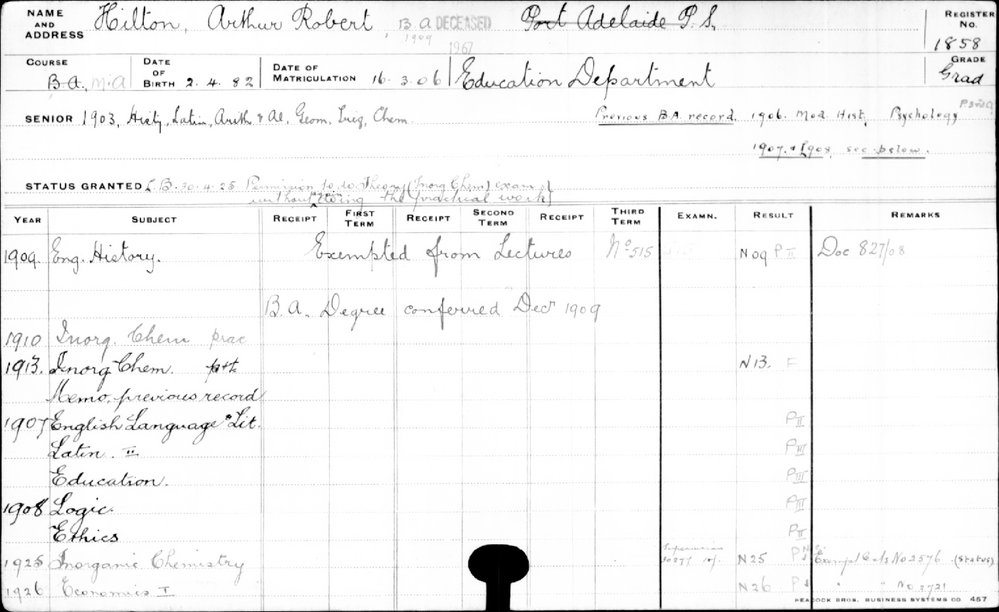 NAME AND ADDRESS Hilton, Arthur Robert, B.A 1909 DECEASED 1967 Port Adelaide P.S. REGISTER No. 1858
COURSE B.A. M.A DATE OF BIRTH 2.4.82 DATE OF MATRICULATION 16.3.06 Education Department GRADE Grad
SENIOR 1903, Histy, Latin, Arith & Al, Geom, Trig, Chem Previous B.A. record. 1906. Mod. Hist. Psychology
1907 & 1908, see below.
STATUS GRANTED 30.4.25 Permission to do Theory (Inorg Chem) exam
without doing the (practical work)
YEAR SUBJECT RECEIPT FIRST TERM RECEIPT SECOND TERM RECEIPT THIRD TERM EXAMN. RESULT REMARKS
1909. Eng. History. Exempted from Lectures No 515 N 09 P II Doc 827/08
B.A. Degree conferred Decr 1909
1910 Inorg. Chem prac
1913. Inorg Chem. N13. F
Memo. previous record
1907 English Language & Lit. P II
Latin. II P III
Education. P III
1908 Logic. P III
Ethics P II
1925 Inorganic Chemistry N25 P Exempt No 3576 (Status)
1926 Economics I N26 P " No 3721
PEACOCK BROS. BUSINESS SYSTEMS CO 457